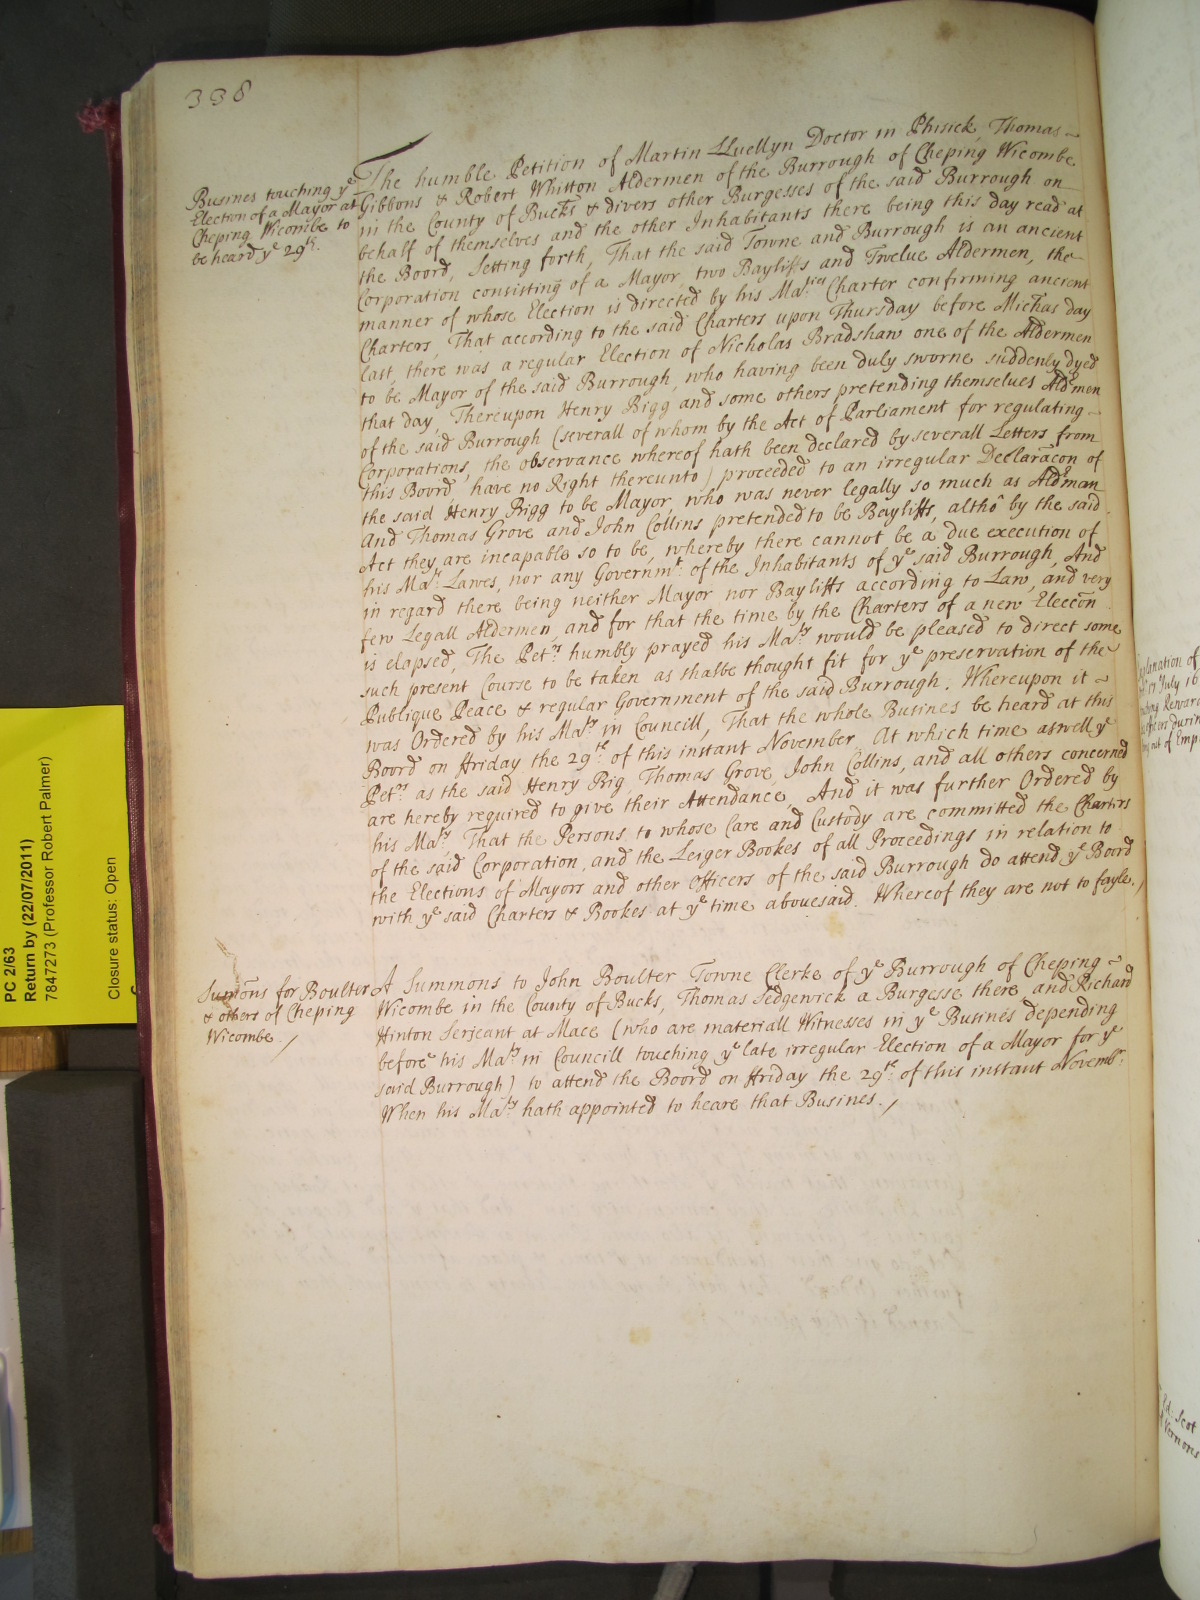 338
Busines touching yᵉ
Election of a Mayor at
Cheping Wicombe to
be heard yᵉ 29ᵗʰ.
The humble Petition of Martin LLuellyn Doctor in Phisick, Thomas
Gibbons & Robert Whitton Aldermen of the Burrough of Cheping Wicombe
in the County of Bucks & divers other Burgesses of the said Burrough on
behalf of themselves and the other Inhabitants there being this day read at
the Boord, Setting forth, That the said Towne and Burrough is an ancient
Corporation consisting of a Mayor, two Bayliffs and Twelue Aldermen, the
manner of whose Election is directed by his Maᵗⁱᵉˢ Charter confirming ancient
Charters, That according to the said Charters upon Thursday before Michas day
last, there was a regular Election of Nicholas Bradshaw one of the Aldermen
to be Mayor of the said Burrough, who having been duly sworne suddenly dyed
that day, Thereupon Henry Bigg and some others pretending themselues Aldᵉmen
of the said Burrough (severall of whom by the Act of Parliament for regulating
Corporations, the observance whereof hath been declared by severall Letters from
this Boord, have no Right thereunto) proceeded to an irregular Declaracon of
the said Henry Bigg to be Mayor, who was never legally so much as Aldᵉman
And Thomas Grove and John Collins pretended to be Bayliffs, altho by the said
Act they are incapable so to be, whereby there cannot be a due execution of
his Maᵗˢ Lawes, nor any Governmᵗ. of the Inhabitants of yᵉ said Burrough, And
in regard there being neither Mayor nor Bayliffs according to Law, and very
few Legall Aldermen, and for that the time by the Charters of a new Eleccon
is elapsed, The Petʳˢ humbly prayed his Maᵗʸ would be pleased to direct some
such present Course to be taken as shalbe thought fit for yᵉ preservation of the
Publique Peace & regular Government of the said Burrough. Whereupon it
was Ordered by his Maᵗʸ in Councill, That the whole Busines be heard at this
Boord on ffriday the 29ᵗʰ of this instant November At which time aswell yᵉ
Petʳˢ as the said Henry Big, Thomas Grove, John Collins, and all others concerned
are hereby required to give their Attendance, And it was further Ordered by
his Maᵗʸ, That the Persons, to whose Care and Custody are committed the Charters
of the said Corporation, and the Leiger Bookes of all Proceedings in relation to
the Elections of Mayors and other Officers of the said Burrough do attend yᵉ Boord
with yᵉ said Charters & Bookes at yᵉ time abouesaid. Whereof they are not to fayle./
Sumons for Boulter
& others of Cheping
Wicombe./
A Summons to John Boulter Towne Clerke of yᵉ Burrough of Cheping
Wicombe in the County of Bucks, Thomas Sedgewick a Burgesse there and Richard
Hinton Serjeant at Mace (who are materiall Witnesses in yᵉ Busines depending
before his Maᵗʸ in Councill touching yᵉ late irregular Election of a Mayor for yᵉ
said Burrough) to attend the Boord on ffriday the 29ᵗʰ of this instant Novembʳ.
When his Maᵗʸ hath appointed to heare that Busines./
PC 2/63
Return by (22/07/2011)
7847273 (Professor Robert Palmer)
Closure status: Open
17 July 16
out of Emp
Scot
Vernons